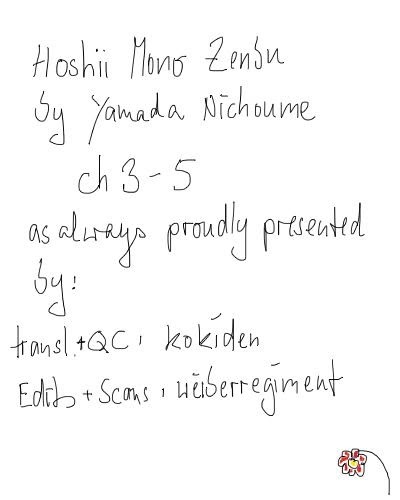 Hoshii Mono Zenbu
by Yamada Nichoume
ch 3-5
as always proudly presented
by:
transl.+QC: kokiden
Edits+Scans: weiberregiment